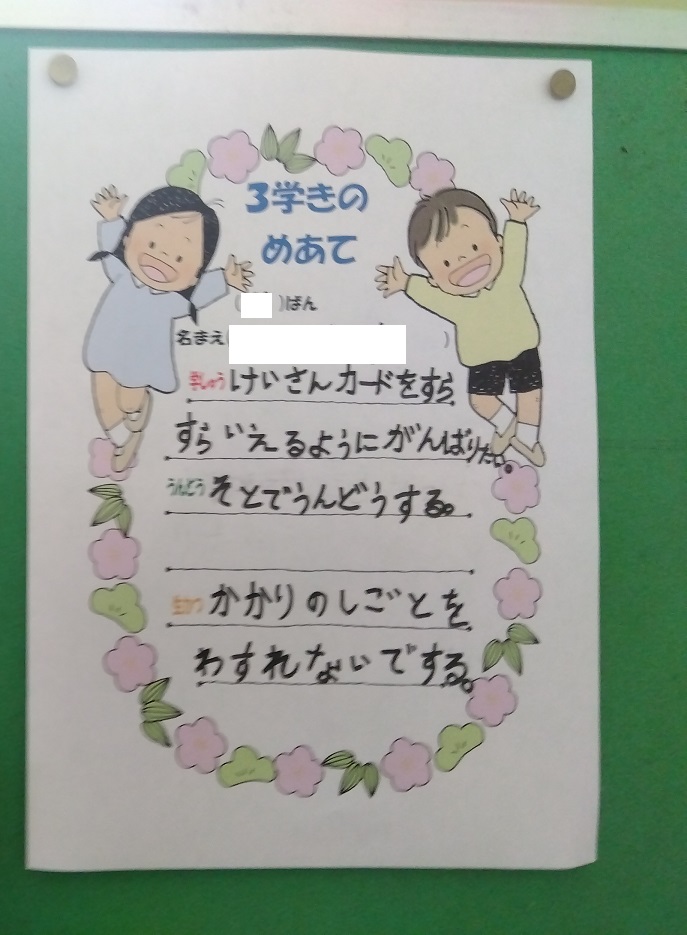 3学きの
めあて
( )ばん
名まえ( )
学しゅう けいさんカードをすら
すらいえるようにがんばりたい。
うんどう そとでうんどうする。
生かつ かかりのしごとを
わすれないでする。